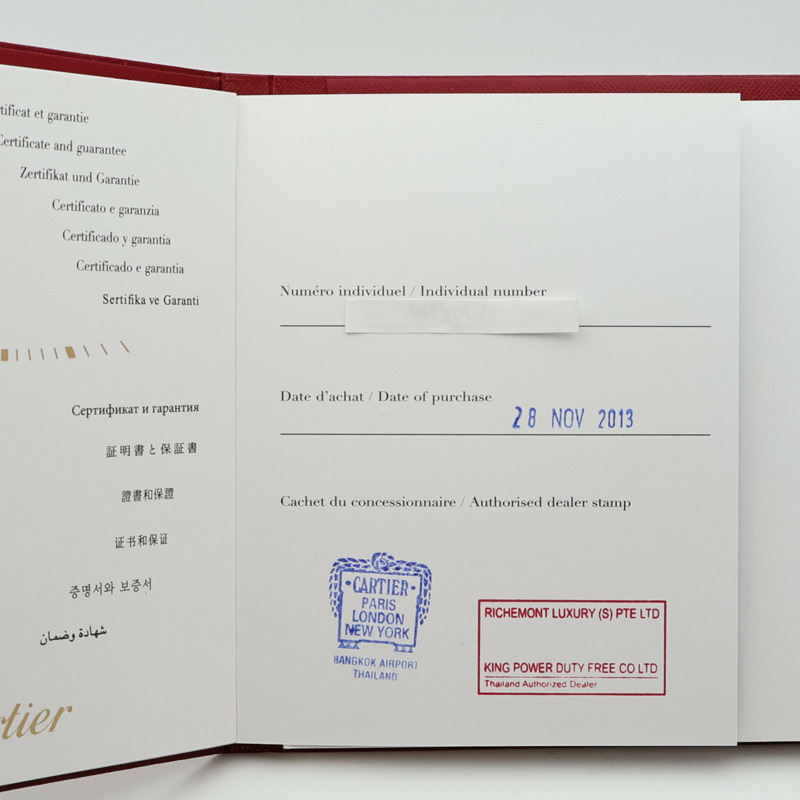 tificat et garantie
Certificate and guarantee
Zertifikat und Garantie
Certificato e garanzia
Certificado y garantia
Certificado e garantia
Sertifika ve Garanti
Сертификат и гарантия
証明書と保証書
證書和保證
证书和保证
증명서와 보증서
شهادة وضمان
rtier
Numéro individuel / Individual number
Date d'achat / Date of purchase
28 NOV 2013
Cachet du concessionnaire / Authorised dealer stamp
CARTIER
PARIS
LONDON
NEW YORK
BANGKOK AIRPORT
THAILAND
RICHEMONT LUXURY (S) PTE LTD
KING POWER DUTY FREE CO LTD
Thailand Authorized Dealer